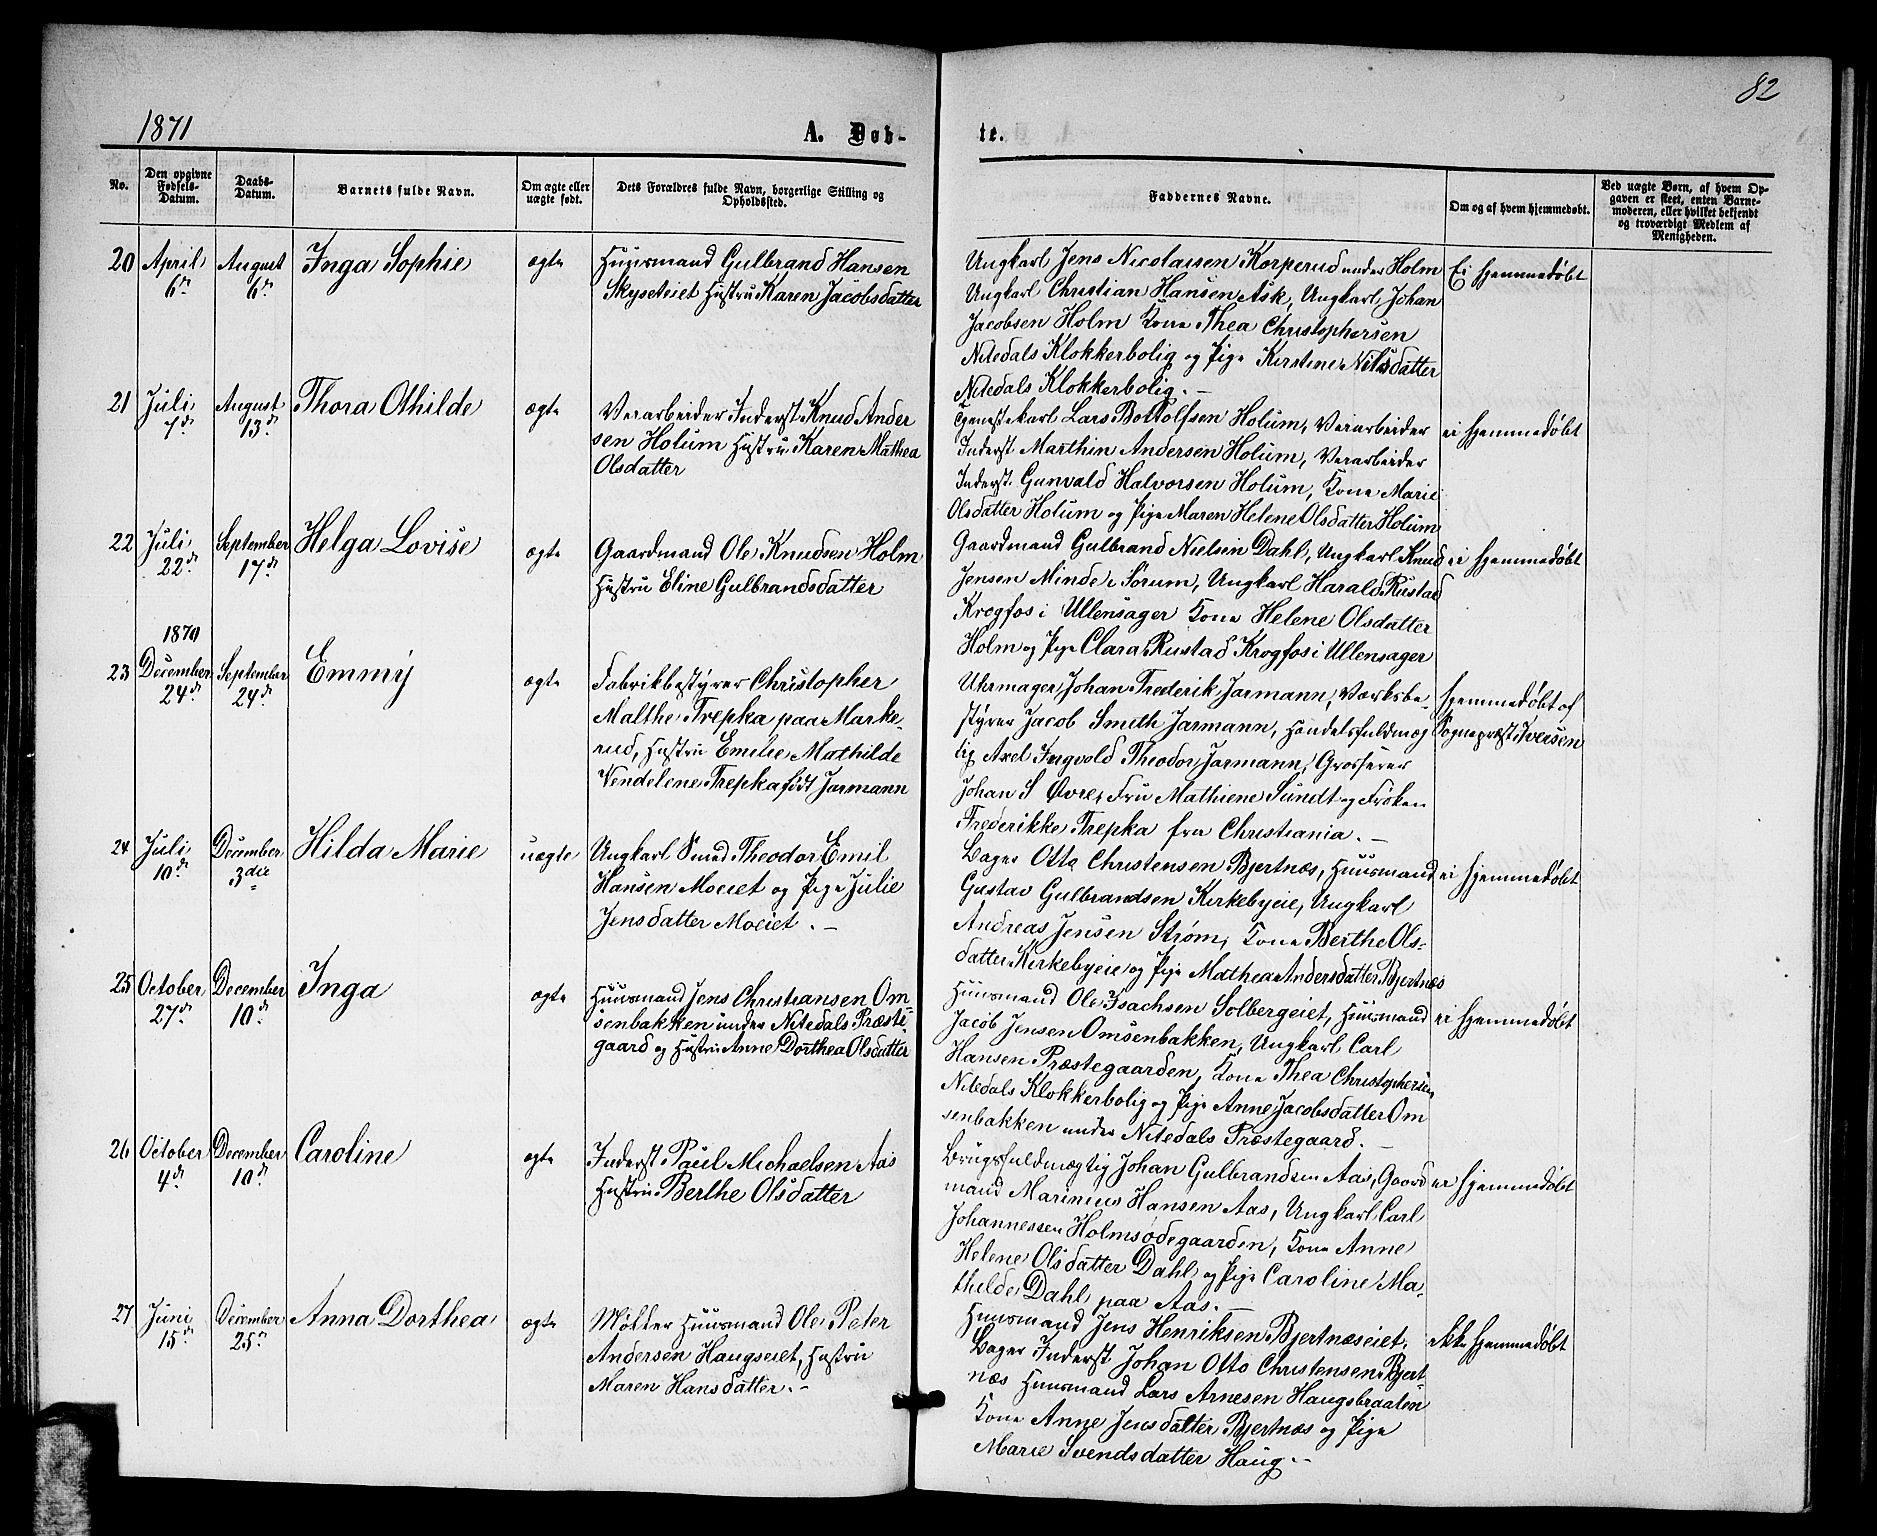 82
1871
A. Døb-
te.
No.
Den opgivne Fødsels-Datum.
Daabs-Datum.
Barnets fulde Navn.
Om ægte eller uægte født.
Dets Forældres fulde Navn, borgerlige Stilling og Opholdssted.
Faddernes Navne.
Om og af hvem hjemmedøbt.
Ved uægte Børn, af hvem Op-
gaven er skeet, enten Barne-
moderen, eller hvilket bekjendt
og troværdigt Medlem af
Menigheden.
20 April 6te August 6te Inga Sophie ægte
Huusmand Gulbrand Hansen
Skyseteiet Hustru Karen Jacobsdatter
Ungkarl Jens Nicolaisen Korperud under Holm
Ungkarl Christian Hansen Ask, Ungkarl Johan
Jacobsen Holm Kone Thea Christophersen
Nitedals Klokkerbolig og Pige Kirstine Nilsdatter
Nitedals Klokkerbolig. –
Ei hjemmedøbt
21 Juli 7de August 13de Thora Othilde ægte
Verarbeider Inderst Knud Ander
sen Holum Hustru Karen Mathea
Olsdatter
Tjenestekarl Lars Bottolfsen Holum, Verarbeider
Inderst Marthin Andersen Holum, Verarbeider
Inderst Gunvald Halvorsen Holum, Kone Marie
Olsdatter Holum og Pige Maren Helene Olsdatter Holum
ei hjemmedøbt
22 Juli 22de September 17de Helga Lovise ægte
Gaardmand Ole Knudsen Holm
Hustru Eline Gulbrandsdatter
Gaardmand Gulbrand Nielsen Dahl, Ungkarl Knud
Jensen Minde i Sørum, Ungkarl Harald Rustad
Krogfos i Ullensager Kone Helene Olsdatter
Holm og Pige Clara Rustad Krogfos i Ullensager
ei hjemmedøbt
1870
23 December 24de September 24de Emmy ægte
Fabrikbestyrer Christopher
Malthe Trepka paa Marke-
rud, Hustru Emilie Mathilde
Vendelene Trepka født Jarmann
Uhrmager Johan Frederik Jarmann, Værksbe-
styrer Jacob Smith Jarmann, Handelsfuldmæg
tig Axel Ingvold Theodor Jarmann, Grosserer
Johan S Øvre, Fru Mathiene Sundt og Frøken
Frederikke Trepka fra Christiania. –
Hjemmedøbt af
Sognepræst Iversen
24 Juli 10de December 3die Hilda Marie uægte
Ungkarl Smed Theodor Emil
Hansen Moeiet og Pige Julie
Jensdatter Moeiet. –
Bager Otto Christensen Bjertnæs, Huusmand
Gustav Gulbrandsen Kirkebyeie, Ungkarl
Andreas Jensen Strøm, Kone Berthe Ols-
datter Kirkebyeie og Pige Mathea Andersdatter Bjertnæs
ei hjemmedøbt
25 October 27de December 10de Inga ægte
Huusmand Jens Christiansen Om-
senbakken under Nitedals Præste-
gaard og Hustru Anne Dorthea Olsdatter
Huusmand Ole Isachsen Solbergeiet, Huusmand
Jacob Jensen Omsenbakken, Ungkarl Carl
Hansen Præstegaarden, Kone Thea Christophersen
Nitedals Klokkerbolig og Pige Anne Jacobsdatter Om
senbakken under Nitedals Præstegaard. –
ei hjemmedøbt
26 October 4de December 10de Caroline ægte
Inderst Paul Michaelsen Aas
Hustru Berthe Olsdatter
Brugsfuldmægtig Johan Gulbrandsen Aas, Gaard
mand Marinius Hansen Aas, Ungkarl Carl
Johannessen Holmsødegaarden, Kone Anne
Helene Olsdatter Dahl og Pige Caroline Ma-
thilde Dahl paa Aas. –
ei hjemmedøbt
27 Juni 15de December 25de Anna Dorthea ægte
Møller Huusmand Ole Peter
Andersen Haugseiet, Hustru
Maren Hansdatter. –
Huusmand Jens Henriksen Bjertnæseiet,
Bager Inderst Johan Otto Christensen Bjert-
næs Huusmand Lars Arnesen Haugsbraaten
Kone Anne Jensdatter Bjertnæs og Pige
Marie Svendsdatter Haug. –
ikke hjemmedøbt